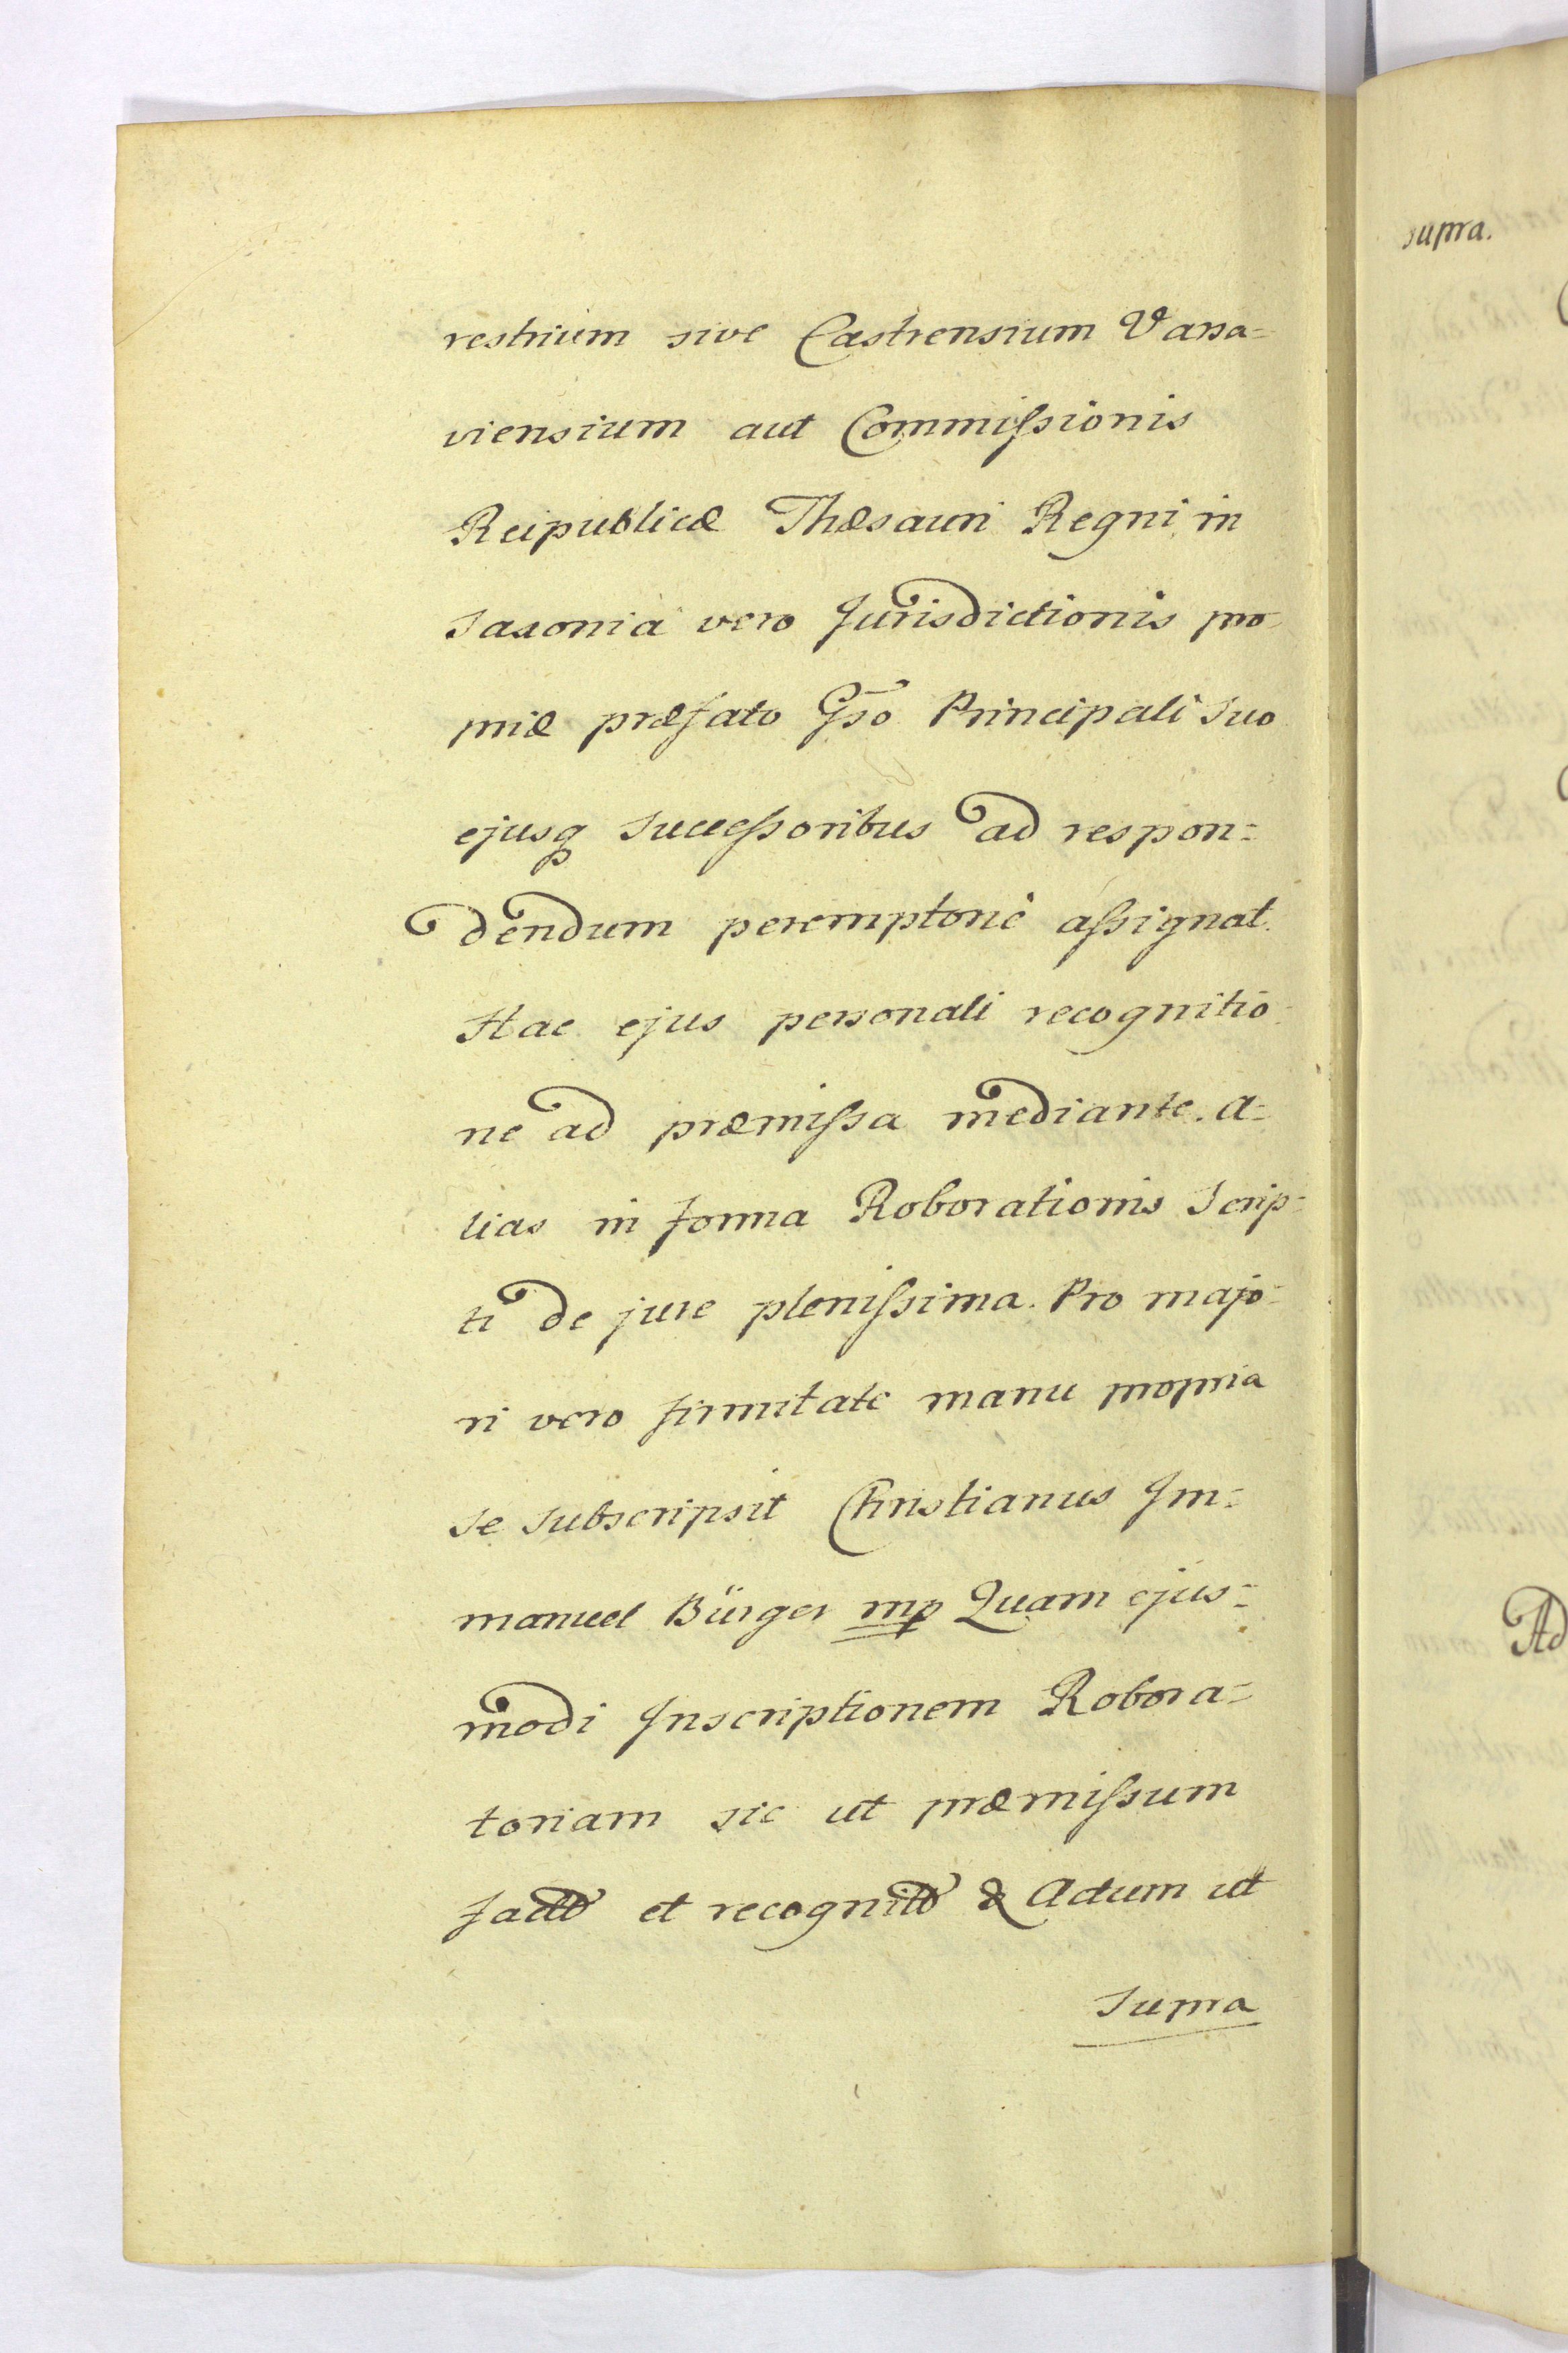 restrium sive Castrensium Varsa=
viensium aut Commiſsionis
Reipublicæ Thæsauri Regni, in
Saxonia vero Jurisdictionis pro-
priæ præfato Gso Principali Suo
ejusq Succeſsoribus ad respon=
dendum peremptorie aſsignat.
Hac ejus personali recognitio-
ne ad præmiſsa mediante. a=
lias in forma Roborationis Scrip=
ti de jure pleniſsima. Pro majo=
ri vero firmitate manu propria
se subscripsit Christianus Im=
manuel Bürger mp Quam ejus=
modi Inscriptionem Robora=
toriam sic ut præmiſsum
et recognit & Actum ut
Supra
supra.
Ad